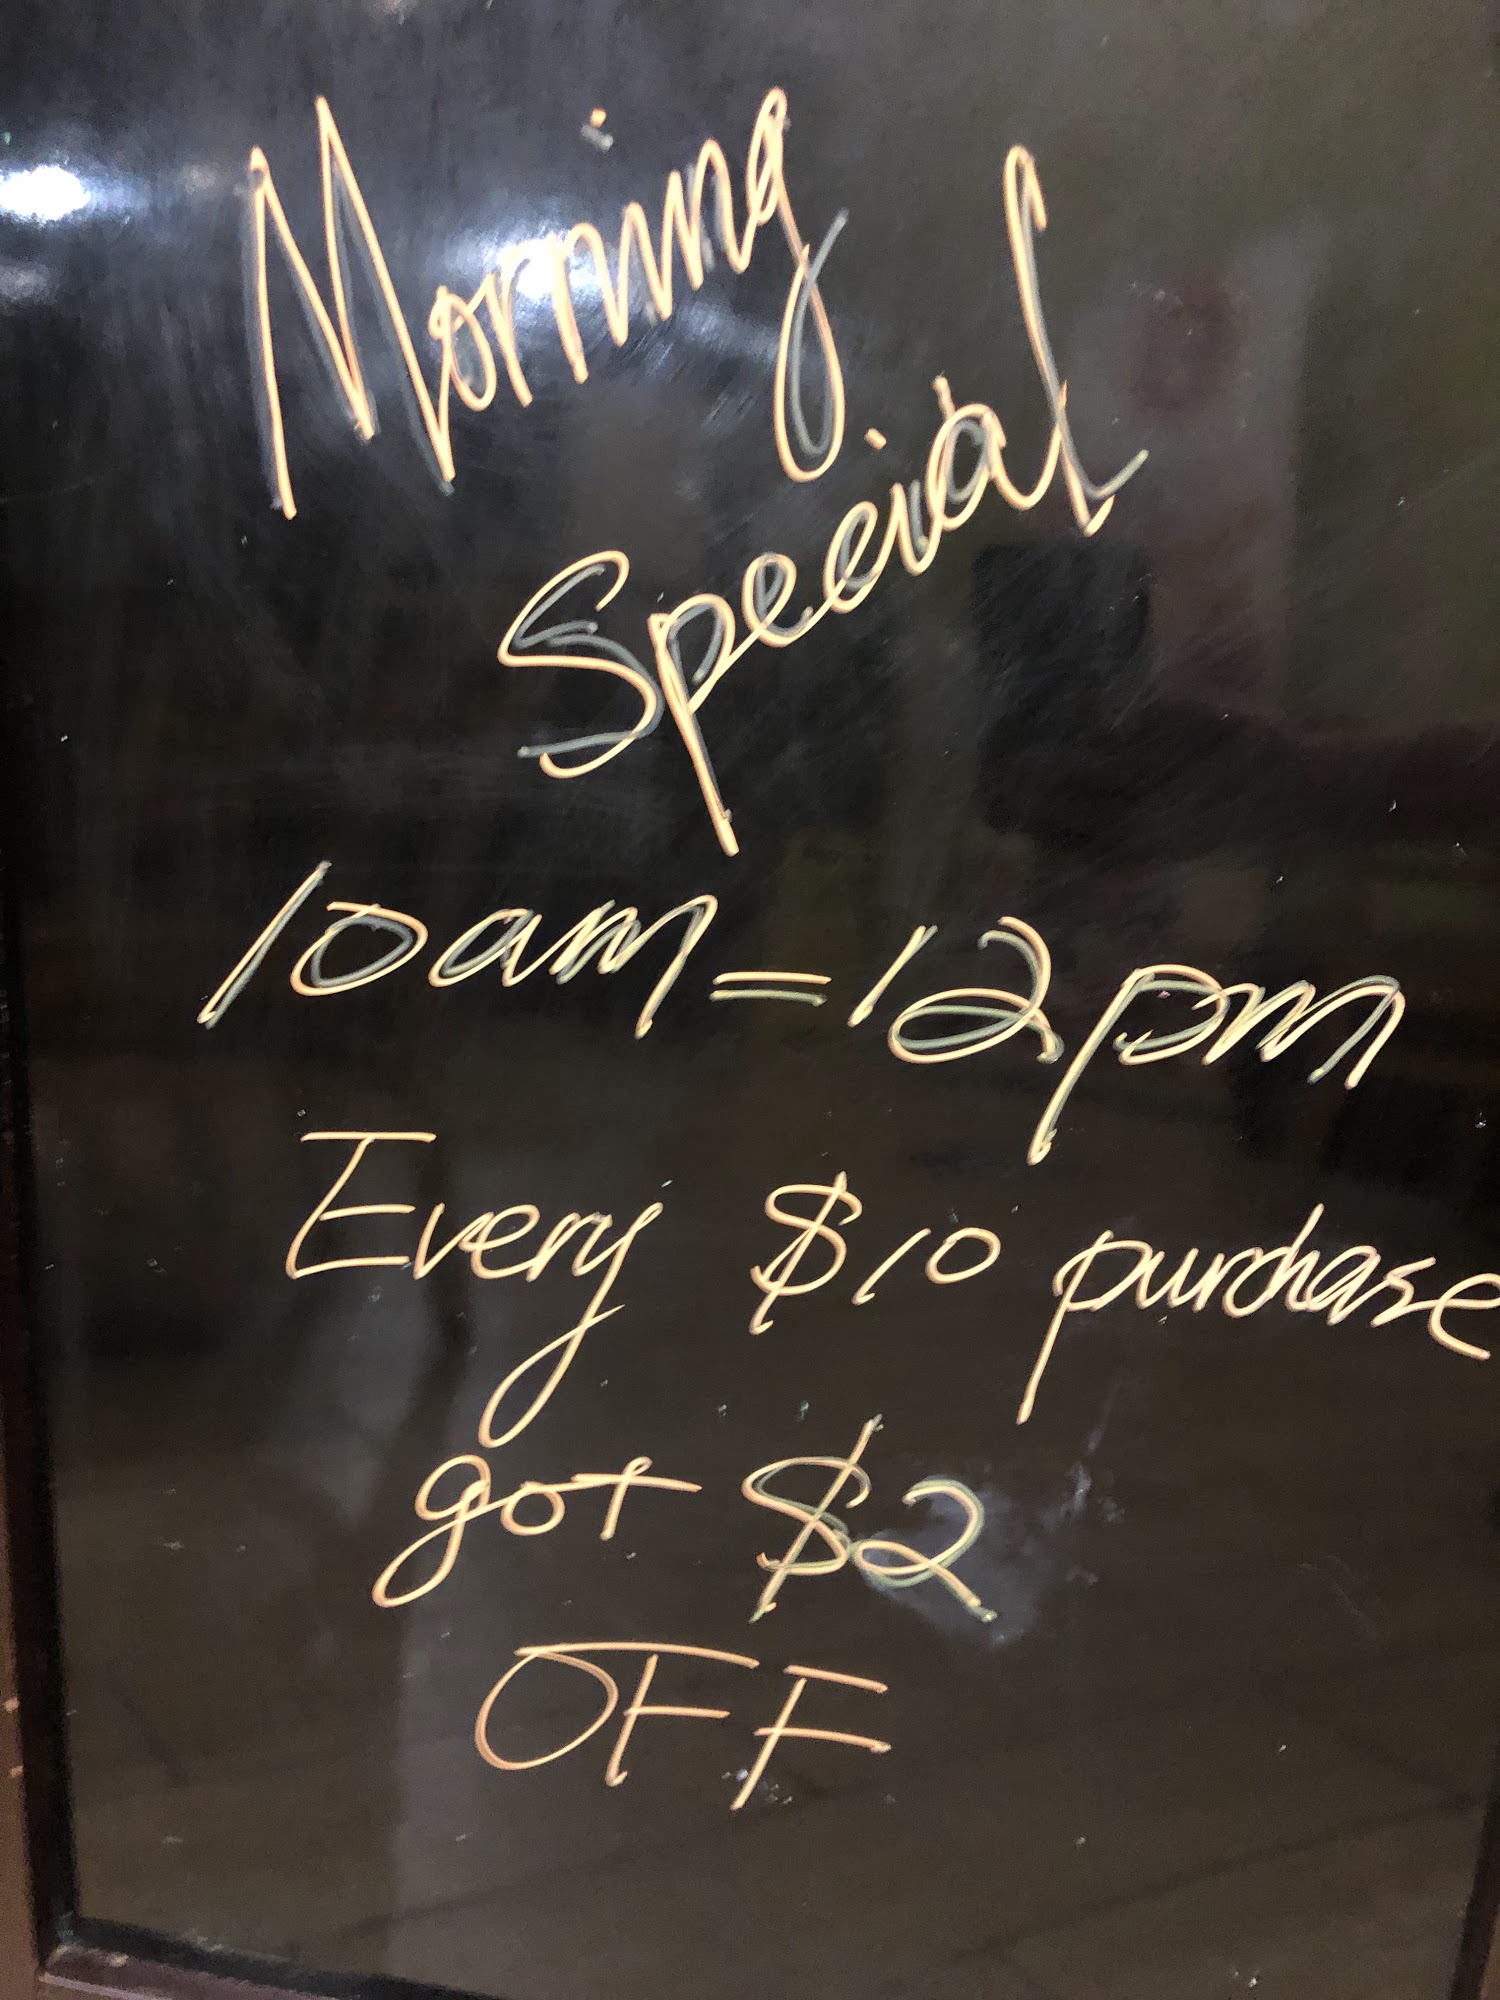 Morning
Special
10am - 12pm
Every $10 purchase
got $2
OFF